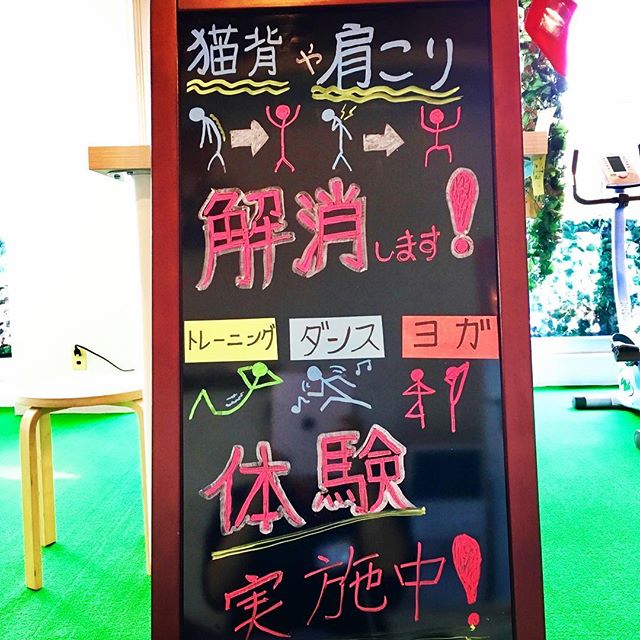 猫背や肩こり
解消します!
トレーニング ダンス ヨガ
体験
実施中!